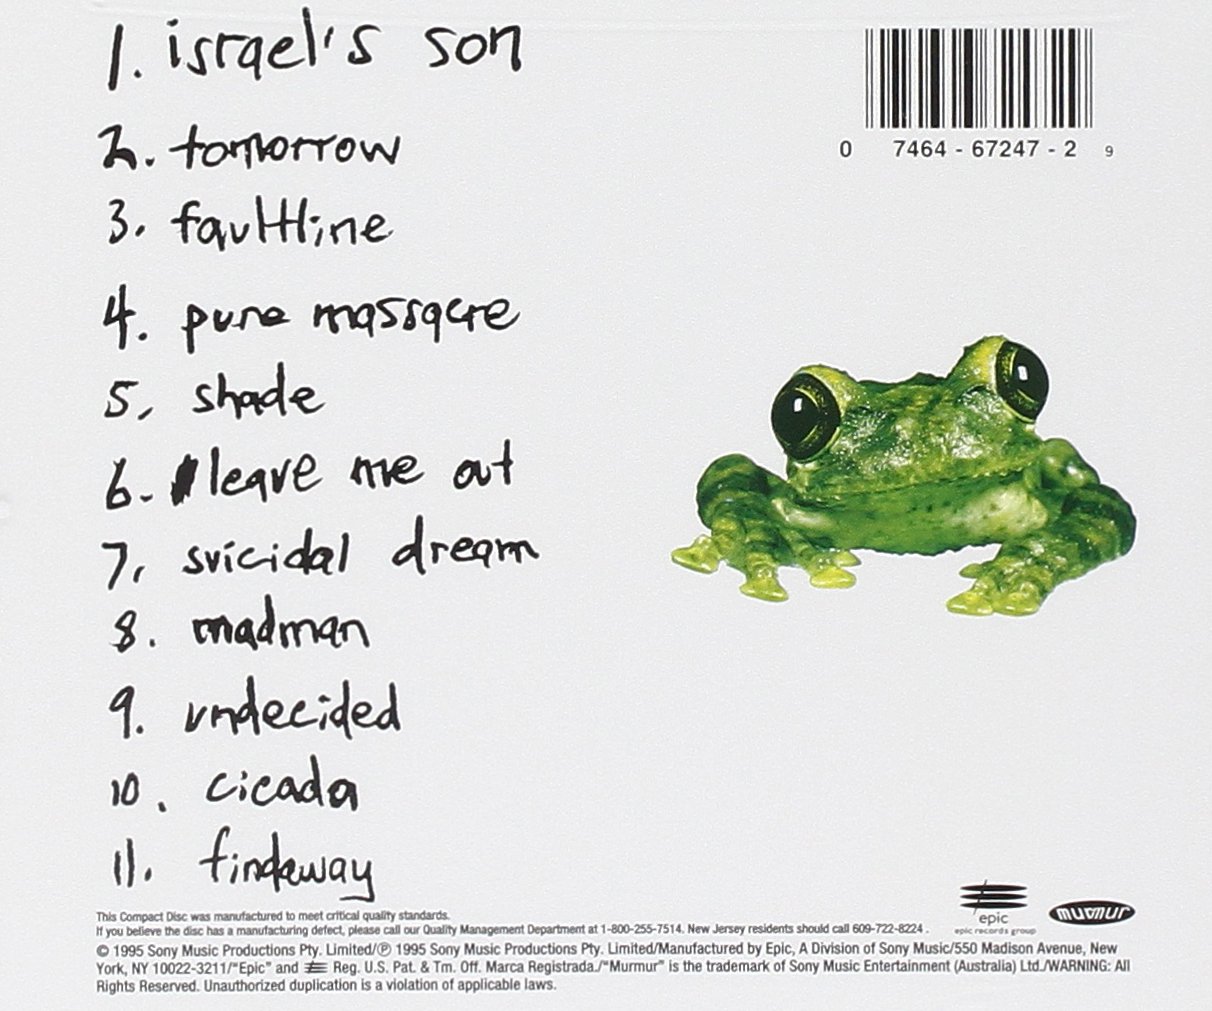 1. israel's son
0 7464 - 67247 - 2 9
2. tomorrow
3. faultline
4. pure massacre
5, shade
6. leave me out
7, suicidal dream
8. madman
9. undecided
10. cicada
11. findaway
This Compact Disc was manufactured to meet critical quality standards.
If you believe the disc has a manufacturing defect, please call our Quality Management Department at 1-800-255-7514. New Jersey residents should call 609-722-8224 .
epic
epic records group
murmur
© 1995 Sony Music Productions Pty. Limited/℗ 1995 Sony Music Productions Pty. Limited/Manufactured by Epic, A Division of Sony Music/550 Madison Avenue, New
York, NY 10022-3211/"Epic" and Reg. U.S. Pat. & Tm. Off. Marca Registrada./"Murmur" is the trademark of Sony Music Entertainment (Australia) Ltd./WARNING: All
Rights Reserved. Unauthorized duplication is a violation of applicable laws.